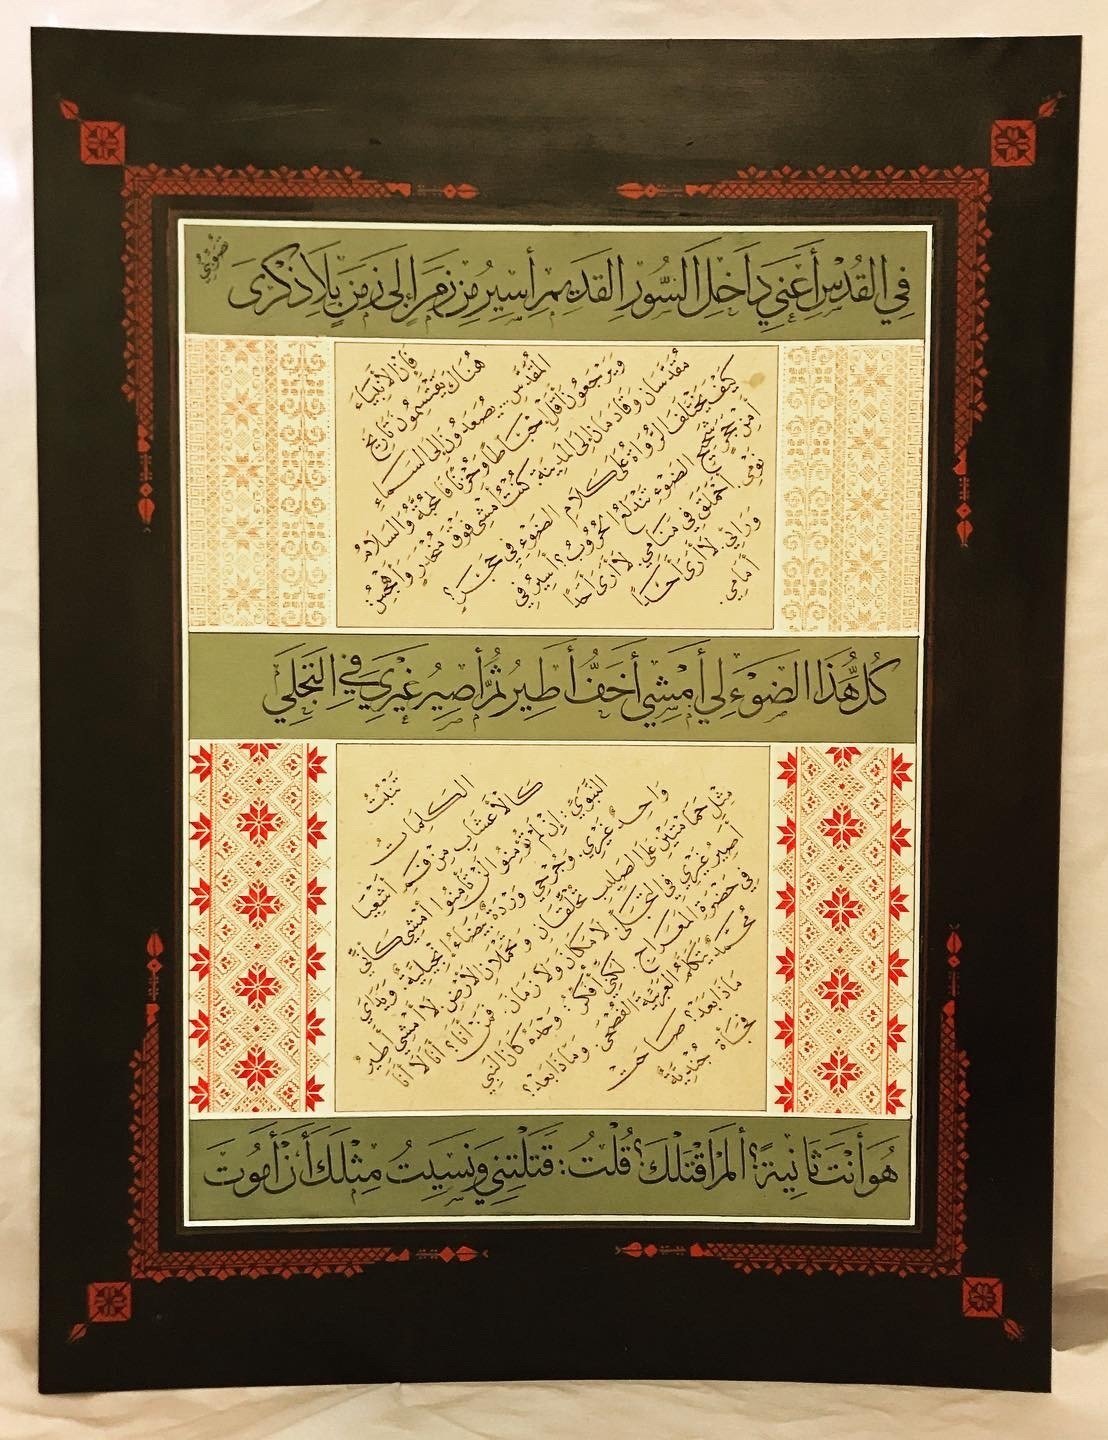 في القُدْسِ أعني داخِلَ السُّورِ القديمِ أسيرُ مِن زمنٍ إلى زمنٍ بِلا ذِكْرى
ضوئي
فإنَّ الأنبياءَ
هُناكَ يقتسمُونَ تاريخَ
المُقَدَّسِ... يصعدُونَ إلى السماءِ
ويرجعُونَ أقلَّ إحباطًا وحُزنًا فالمحبَّةُ والسلامُ
مُقَدَّسانِ وقادمانِ إلى المدينةِ. كنتُ أمشي فوقَ مُنْحَدَرٍ وأهجِسُ:
كيفَ يختلفُ الرُّواةُ على كلامِ الضوءِ في حَجَرٍ؟
أمِنْ حَجَرٍ شحيحِ الضوءِ تندلعُ الحُروبُ؟ أسيرُ في
نَوْمِي. أُحملِقُ في منامي. لا أرى أحدًا
ورائي. لا أرى أحدًا
أمامي.
كُلُّ هَذا الضَوْءِ لي أمْشي أخفُّ أطيرُ ثُمَّ أصيرُ غَيْري في التجلّي
تنبُتُ
الكلماتُ
كالأعشابِ مِنْ فمِ أشعيا
النَّبَويِّ: إنْ لم تُؤمنوا لنْ تأمنوا أمشي كأنِّي
واحدٌ غيري. وجُرحي وردةٌ بيضاءُ إنجيليَّةٌ ويدايَ
مثلُ حمامتَينِ على الصليبِ تُحلّقانِ وتحملانِ الأرضَ لا أمشي أطيرُ
أصيرُ غيري في التجلّي لا مكانَ ولا زمانَ فمَنْ أنا؟ أنا لا أنا
في حضرةِ المعراجِ. لكنّي أُفكّرُ: وحدَهُ كانَ النبيُّ
مُحمَّدٌ يتكلَّمُ العربيَّةَ الفُصحى وماذا بعدُ؟
ماذا بعدُ؟ صاحتْ
فجأةً جُنديَّةٌ
هُوَ أنْتَ ثانيةً؟ ألم أقْتُلكَ؟ قُلْتُ: قتلْتِني ونَسِيتُ مِثْلكِ أنْ أمُوتْ